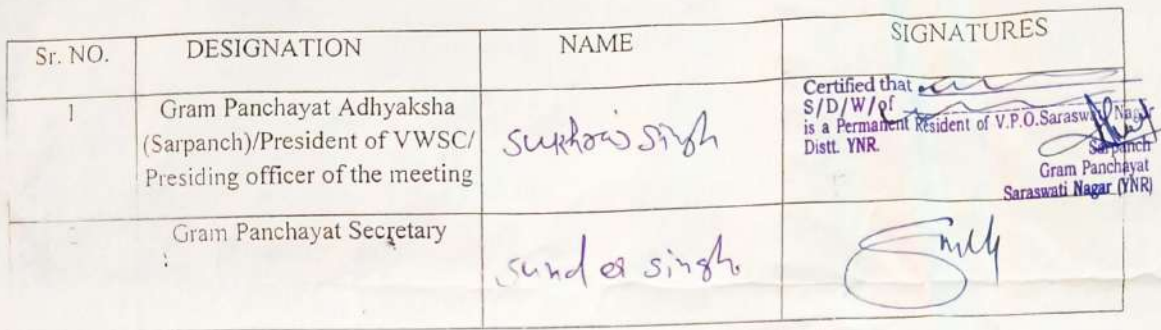 Sr. NO. DESIGNATION NAME SIGNATURES
1 Gram Panchayat Adhyaksha
(Sarpanch)/President of VWSC/
Presiding officer of the meeting
singh
Certified that
S/D/W/of
is a Permanent Resident of V.P.O.Saraswati Nagar
Distt. YNR.
Sarpanch
Gram Panchayat
Saraswati Nagar (YNR)
Gram Panchayat Secretary
sunder singh